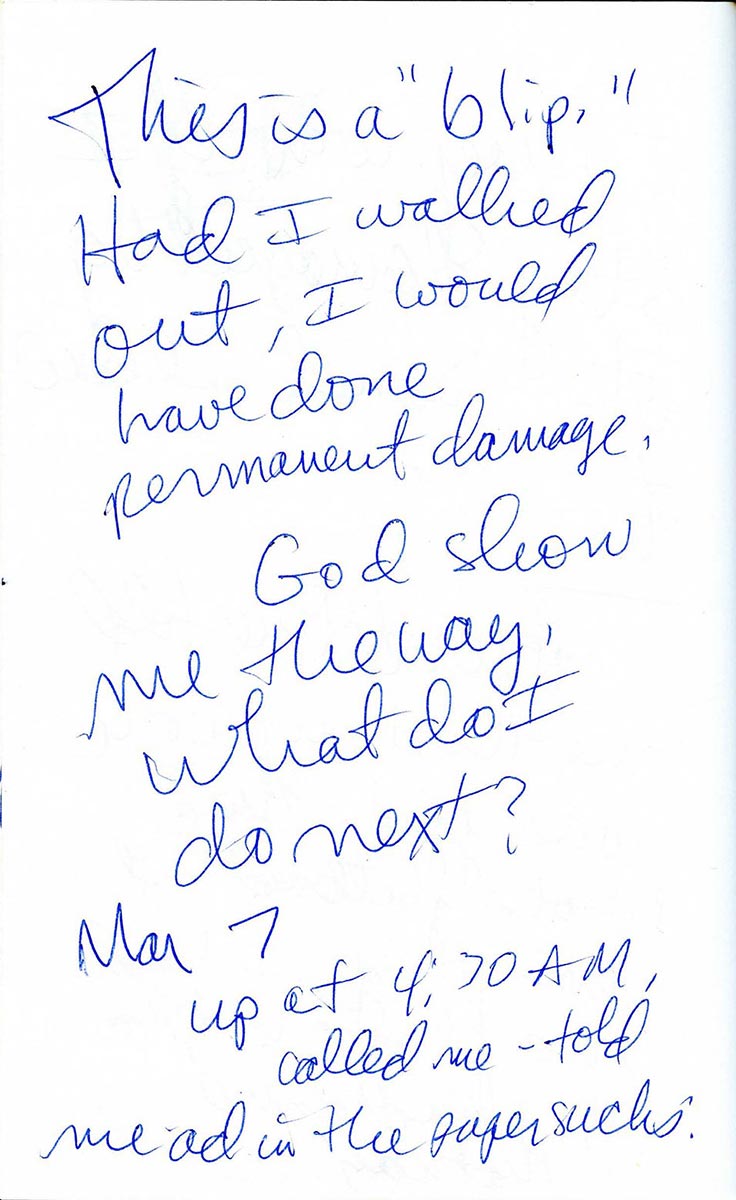 This is a "blip."
Had I walked
out, I would
have done
permanent damage.
God show
me the way,
what do I
do next?
Mar 7
up at 4:30 AM,
called me - told
me ad in the paper sucks.